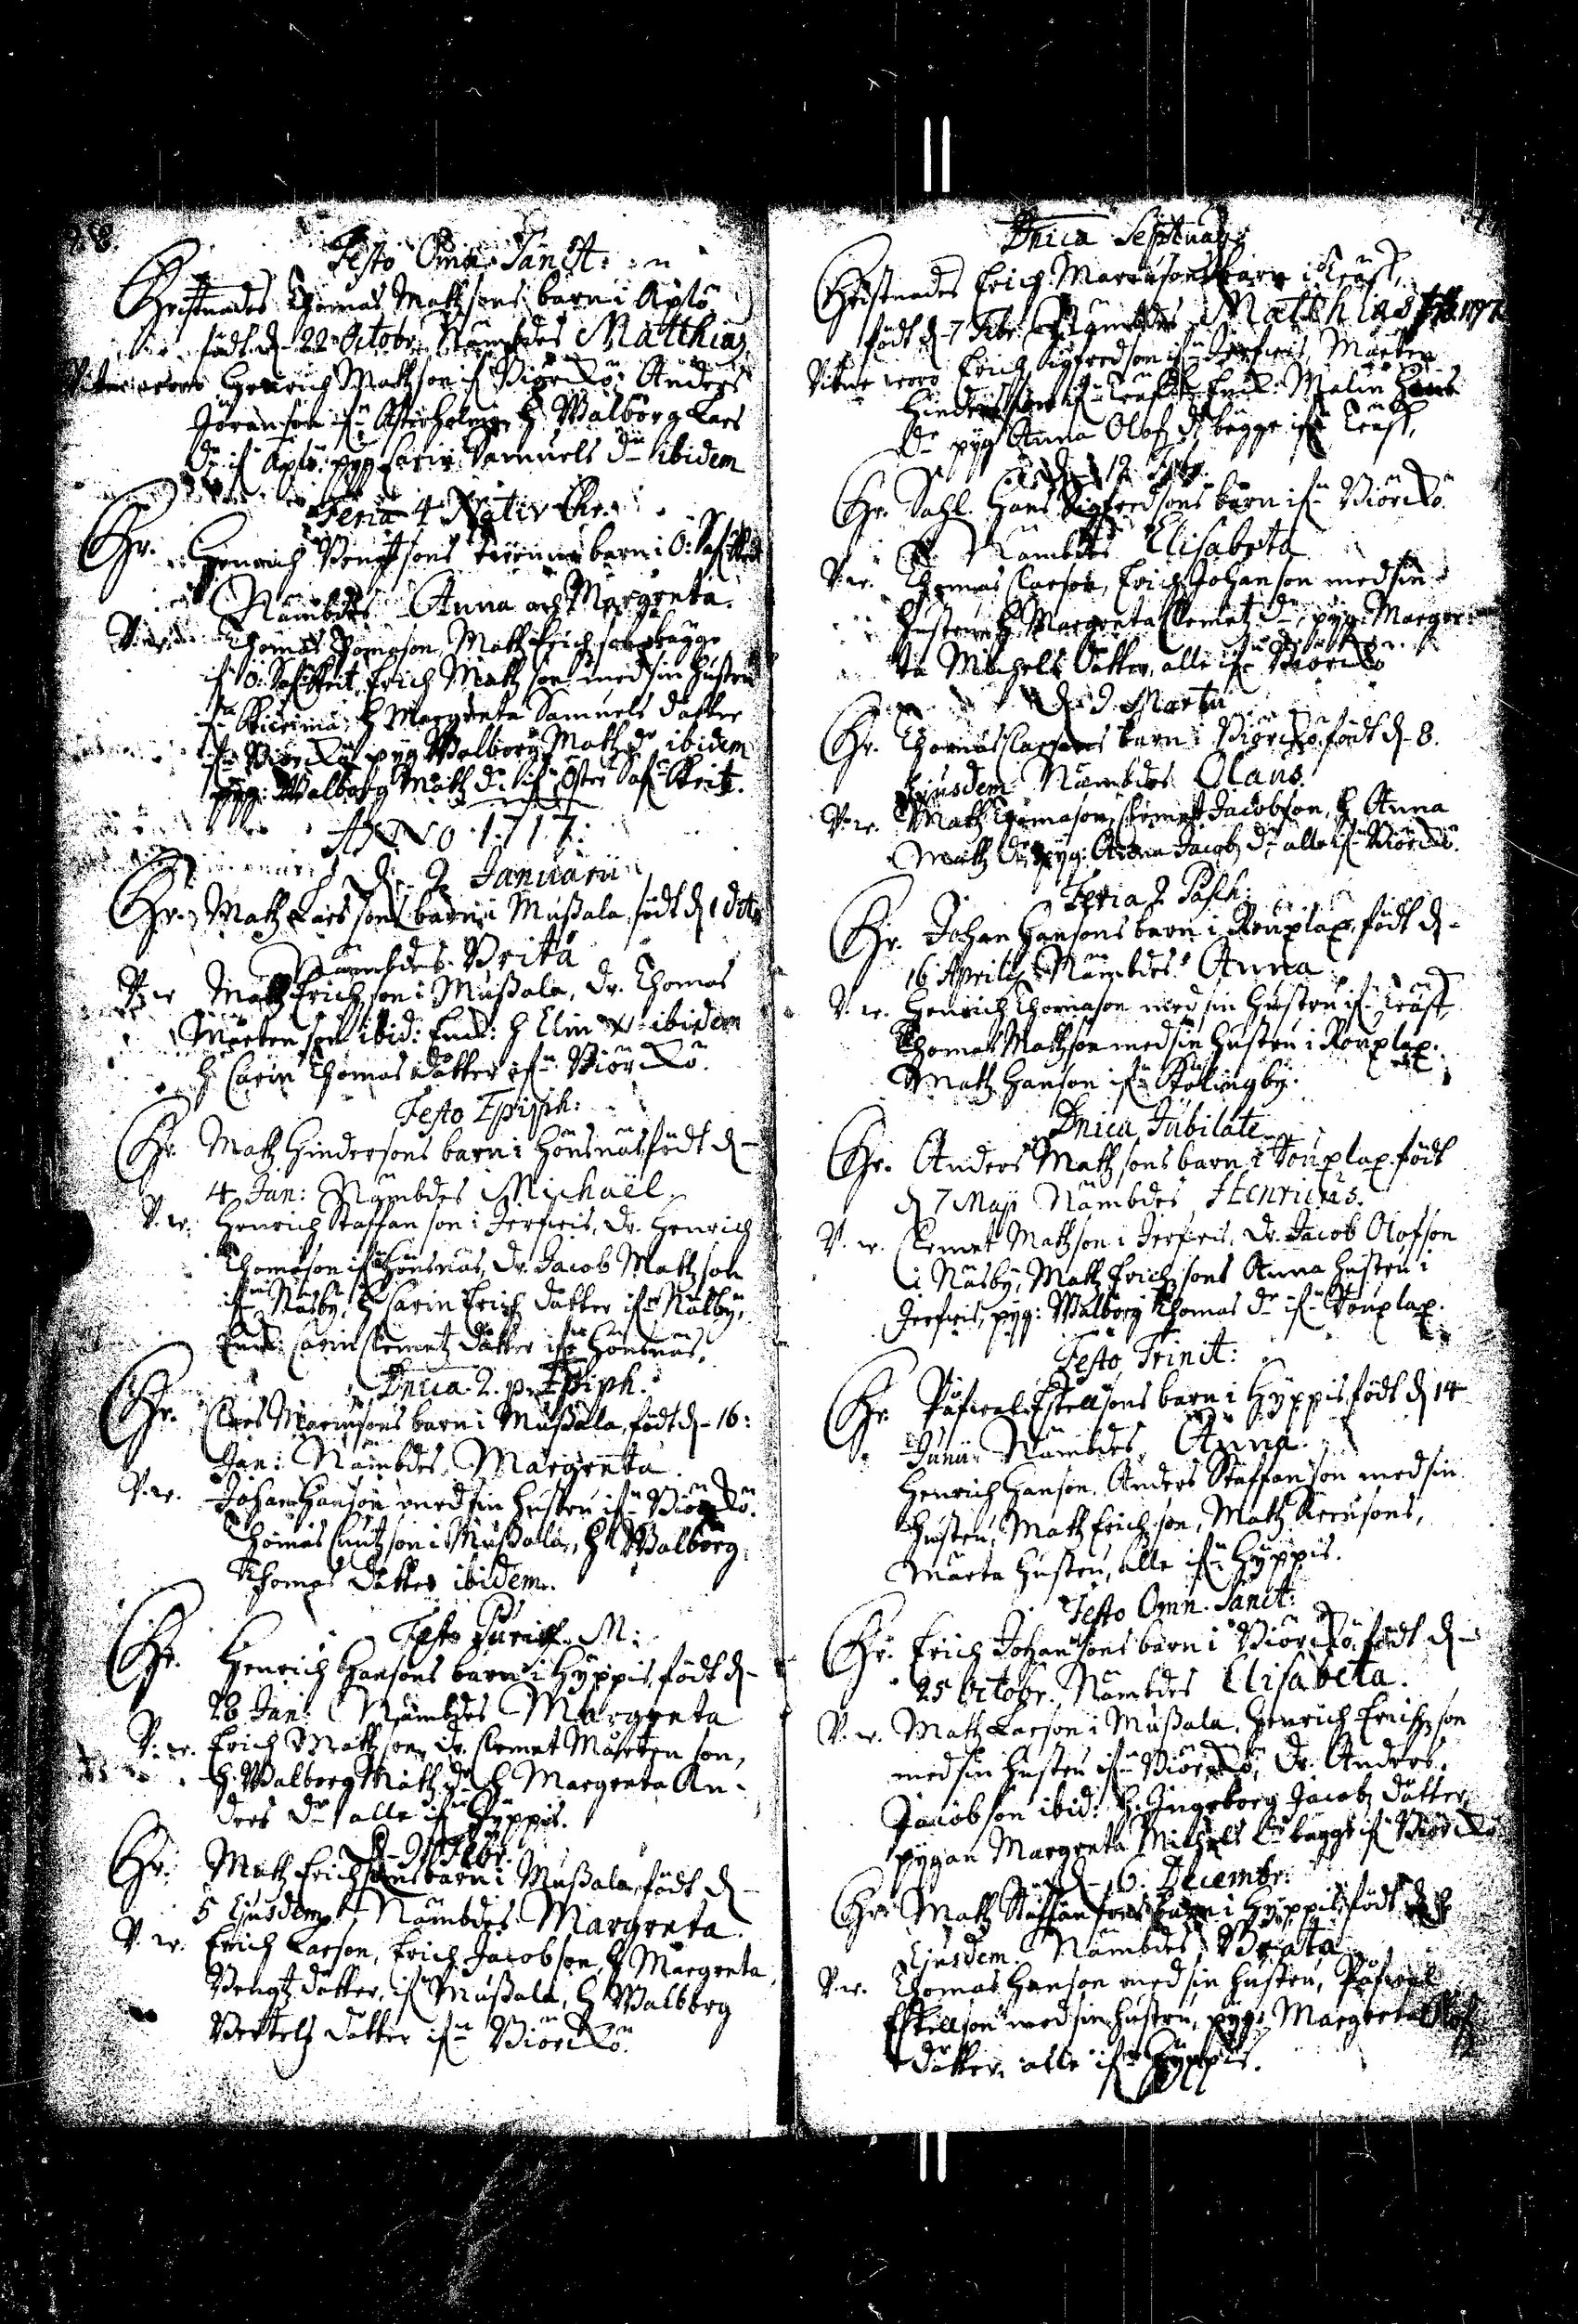 Festo Omn: Sanct:
Christnades Thomas Matzsons barn i Aplö
födt d. 22 Octobr. Nämbdes Matthias
Vitne woro Henrich Matzson if. Biörckö, Anders
Jöranson ifr. Asterholm, H. Walborg Lars
dr. ifr. Aplö, pyg. Carin Samuels dr. ibidem
Feria 4 Nativ. Chr.
Chr. Henrich Bengtsons barn i Ö:
Nämbdes Anna och Margreta.
V. w. Thomas Thomason, Matz Erichson bägge
if. Ö: Erich Matzson med sin hustru
H. Margreta Samuels dotter
ifr. Biörckö pyg Walborg Matz dr. ibidem
pyg: Walborg Matz dr. ifr. Öster
ANNO 1717.
d. 2 Januarii
Chr. Matz Larssons barn i Mußala, födt d. 1 dito
Nämbdes Brita
V. w. Matz Erichson i Mußala, Dr. Thomas
Mårtenson ibid: Enk: H. Elin ibidem
H. Carin Thomas dotter ifr. Biörckö.
Festo Epiph:
Chr. Matz Hindersons barn i Hönsnäs, födt d.
4 Jan: Nämbdes Michaël.
V. w. Henrich Staffanson i Jerfwis, Dr. Henrich
Thomason ifr. Hönsnäs, Dr. Jacob Matzson
ifr. Näsby, H. Carin Erichz dotter ifr. Näsby,
Carin Clemetz dotter ifr. Hönsnäs.
Dnica 2. p. Epiph.
Chr. Claes Marcusons barn i Mußala, födt d. 16:
Jan: Nämbdes Margreta.
V. w. Johan Hanson med sin hustru ifr. Biörckö.
Thomas Cnutzson i Mußala, H. Walborg
Thomas dotter ibidem.
Festo Purif. M:
Chr. Henrich Hansons barn i Hyppis, födt d.
28 Jan: Nämbdes Margreta
V. w. Erich Matzson, Dr. Clemet Mårtenson,
H. Walborg Matz dr. H. Margreta An-
ders dr. alle ifr. Hyppis.
d. 9 Febr.
Chr. Matz Erichsons barn i Mußala, födt d.
5 Ejusdem, Nämbdes Margreta.
V. w. Erich Larson, Erich Jacobson, H. Margreta
Bengtz dotter, if. Mußala, H. Walborg
Bertels dotter ifr. Biörckö.
Dnica Septuag:
Christnades Erich Marcusons barn i Träsk,
födt d. 7 Febr. Nämbdes Matthias
Vitne woro Erich Sigfredson ifr. Jerfwis, Mårten
Hinderson ifr. Träsk, Enk: Malin Hans
dr. pyg Anna Olofz dr. bägge ifr. Träsk.
d. 12
Chr. Sahl. Hans Sigfredsons barn ifr. Biörckö.
Nämbdes Elisabeta
V. w. Thomas Clarson, Erich Johanson med sin
hustru H. Margreta Clemetz dr. pyg. Margre-
ta Michels dotter, alle ifr. Biörckö
d. 9 Martii
Chr. Thomas Clarsons barn i Biörckö, födt d. 8.
Ejusdem Nämbdes Olaus.
V. w. Matz Thomason, Clemet Jacobson, H. Anna
Matz dr. pyg: Anna Jacobz dr. alle ifr. Biörckö.
Feria 2 Pasch:
Chr. Johan Hansons barn i Rouplax, födt d.
16 Aprilis Nämbdes Anna
V. w. Henrich Thomason med sin hustru ifr. Träsk,
Thomas Matzson med sin hustru i Rouplax.
Matz Hanson ifr. Kålingby.
Dnica Jubilate
Chr. Anders Matzsons barn i Rouplax födt
d. 7 Maji Nämbdes Henricus.
V. w. Clemet Matzson i Jerfwis, Dr. Jacob Olofson
i Näsby, Matz Erichsons Anna hustru i
Jerfwis, pyg: Walborg Thomas dr. ifr. Rouplax.
Festo Trinit:
Chr. Påfwal Eskellsons barn i Hyppis, födt d. 14
Junii Nämbdes Anna.
Henrich Hanson. Anders Staffanson med sin
hustru, Matz Erichson, Matz Kerusons,
Märta hustru, alle ifr. Hyppis.
Festo Omn. Sanct:
Chr. Erich Johansons barn i Biörckö, födt d.
25 Octobr. Nämbdes Elisabeta.
V. w. Matz Larson i Mußala, Henrich Erichson
med sin hustru ifr. Biörckö, Dr. Anders
Jacobson ibid: H. Ingeborg Jacobz dotter
pygan Margreta Michels dr. bägge ifr. Biörckö
d. 6. Decembr:
Chr. Matz Staffansons barn i Hyppis, födt d.
Ejusdem. Nämbdes Brita
V. w. Thomas Hanson med sin hustru, Påfwal
Eskellson med sin hustru, pyg. Margreta Olofz
dotter, alle ifr. Hyppis.